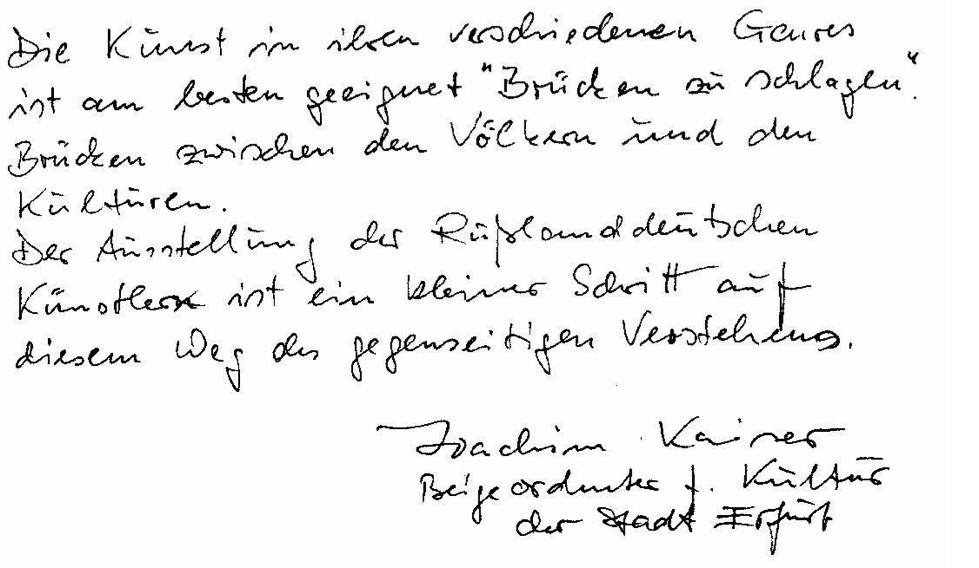 Die Kunst in ihren verschiedenen Genres
ist am besten geeignet "Brücken zu schlagen".
Brücken zwischen den Völkern und den
Kulturen.
Der Ausstellung der Rußlanddeutschen
Künstler ist ein kleiner Schritt auf
diesem Weg des gegenseitigen Verstehens.
Joachim Kaiser
Beigeordneter f. Kultur
der Stadt Erfurt